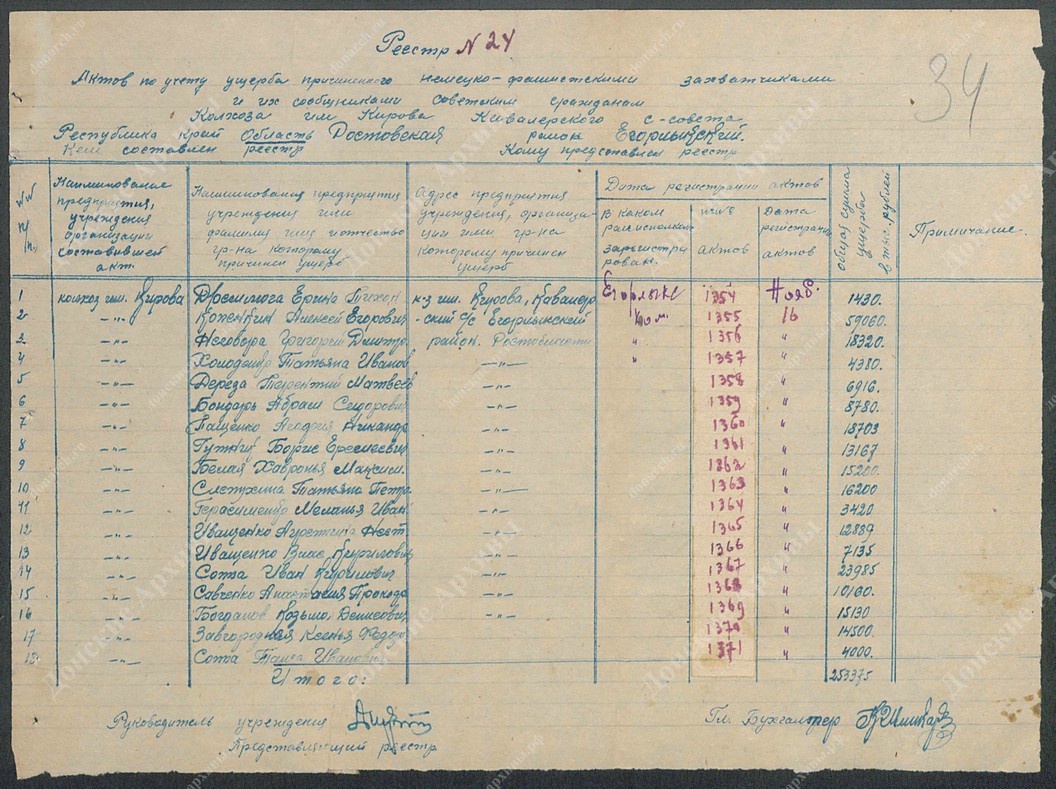 Реестр N 24
34
Актов по учету ущерба причиненного немецко-фашистскими захватчиками
и их сообщниками советским гражданам
Колхоза им Кирова Кавалерского с-совета
Республика край Область Ростовская район Егорлыкский.
Кем составлен реестр Кому представлен реестр
№№ п/п. Наименование предприятия, учреждения организации составившей акт. Наименование предприятия учреждения или фамилия имя и отчество гр-на которому причинен ущерб Адрес предприятия учреждения, организации или гр-на которому причинен ущерб Дата регистрации актов В каком райисполкоме зарегистрирован. №№ актов Дата регистрации актов общая сумма ущерба в тыс. рублей Примечание.
1 колхоз им. Кирова Ерина Тихон к-з им. Кирова, Кавалер- Егорлыкс 1354 Нояб. 1430.
2 -„- Алексей Егорович -ский с/с Егорлыкский 1355 16 59060.
3 -„- Неговора Григорий Дмитр район. Ростобласти „ 1356 „ 18320.
4 -„- Холоденко Татьяна Иванов -„- „ 1357 „ 4380.
5 -„- Дереза Терентий Матвеев 1358 „ 6916.
6 -„- Бондарь Абрам Сидорович -„- 1359 „ 8780.
7 -„- Пащенко -„- 1360 „ 18703
8 -„- Борис Еремеевич -„- 1361 „ 13167
9 -„- Белая Хавронья Максим. -„- 1362 „ 15200.
10. -„- Татьяна Петр. -„- 1363 „ 16200
11 -„- Герасименко Меланья Иван -„- 1364 „ 3420
12 -„- Иващенко -„- 1365 „ 12889
13 -„- Иващенко Влас Кирилович 1366 „ 7135
14 -„- Сота Иван Кирилович -„- 1367 „ 23985
15 -„- Савченко Анастасия Прокофь 1368 „ 10160.
16 -„- Богданов Козьма Денисович 1369 „ 15130
17 Завгородная Ксенья Федор 1370 „ 14500.
18 -„- Сота Иванович 1371 „ 4000.
Итого: 253375
Руководитель учреждения Гл. Бухгалтер
Представляющий реестр